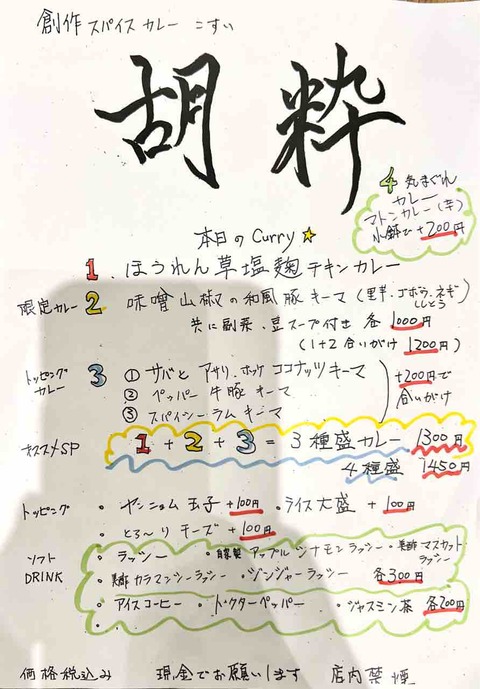 創作スパイスカレー こすい
胡粋
4 気まぐれ
カレー
マトンカレー(辛)
小鉢で+200円
本日のCurry☆
1. ほうれん草塩麹チキンカレー
限定カレー 2 味噌山椒の和風豚キーマ(里芋・ゴボウ・ネギ・ししとう)
共に副菜・豆スープ付き 各1000円
(1+2 合いがけ 1200円)
トッピングカレー 3 ① サバと アサリ・ホッケ ココナッツキーマ
② ペッパー 牛豚 キーマ
③ スパイシー ラム キーマ
+200円で
合いがけ
オススメSP 1+2+3=3種盛カレー 1300円
4種盛 1450円
トッピング ・ヤンニョム玉子+100円 ・ライス大盛+100円
・とろ〜りチーズ+100円
ソフトDRINK ・ラッシー ・自家製アップルシナモンラッシー ・美酢マスカットラッシー
・美酢カラマンシーラッシー ・ジンジャーラッシー 各300円
・アイスコーヒー ・ドクターペッパー ・ジャスミン茶 各200円
価格税込み 現金でお願いします 店内禁煙